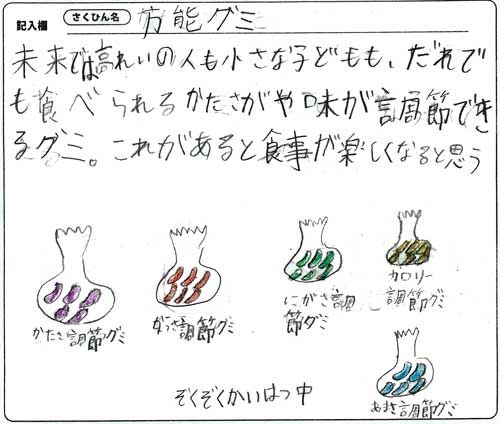 記入欄 さくひん名 万能グミ
未来では高れいの人も小さな子どもも、だれで
も食べられるかたさがや味が調節でき
るグミ。これがあると食事が楽しくなると思う
かたさ調節グミ
調節グミ
にがさ調
節グミ
カロリー
調節グミ
あまさ調節グミ
ぞくぞくかいはつ中